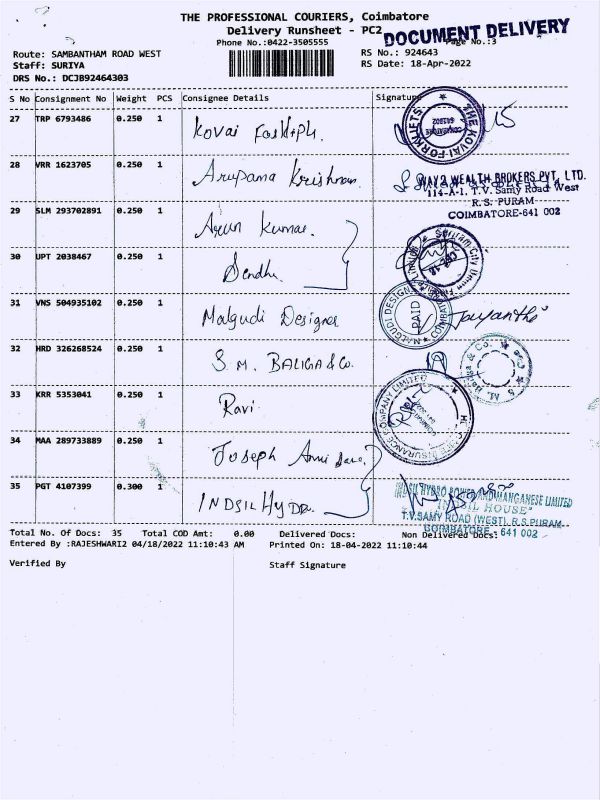 THE PROFESSIONAL COURIERS, Coimbatore
Delivery Runsheet - PC2
DOCUMENT DELIVERY
Phone No.:0422-3505555
Page No.:3
Route: SAMBANTHAM ROAD WEST
RS No.: 924643
Staff: SURIYA
RS Date: 18-Apr-2022
DRS No.: DCJB92464303
S No Consignment No Weight PCS Consignee Details Signature
27 TRP 6793486 0.250 1 Kovai
THE KOVAI FORKLIFTS COIMBATORE 641002
28 VRR 1623705 0.250 1 Arupama Krishnan
WAY2 WEALTH BROKERS PVT. LTD.
114-A-1, T.V. Samy Road West
R.S. PURAM
COIMBATORE-641 002
29 SLM 293702891 0.250 1 Arun Kumar.
30 UPT 2038467 0.250 1 Sendhu
Shriram City Union
31 VNS 504935102 0.250 1 Malgudi Designer
MALGUDI DESIGNER PAID
Jayanthi
32 HRD 326268524 0.250 1 S.M. BALIGA & Co.
S. M. Baliga & Co.
33 KRR 5353041 0.250 1 Ravi
INSURANCE COMPANY LIMITED
34 MAA 289733889 0.250 1 Joseph
35 PGT 4107399 0.300 1 INDSIL HyDR.
INDSIL HYDRO POWER AND MANGANESE LIMITED
"INDSIL HOUSE"
T.V.SAMY ROAD (WEST), R.S.PURAM,
COIMBATORE - 641 002
Total No. Of Docs: 35 Total COD Amt: 0.00 Delivered Docs: Non Delivered Docs:
Entered By :RAJESHWARI2 04/18/2022 11:10:43 AM Printed On: 18-04-2022 11:10:44
Verified By Staff Signature